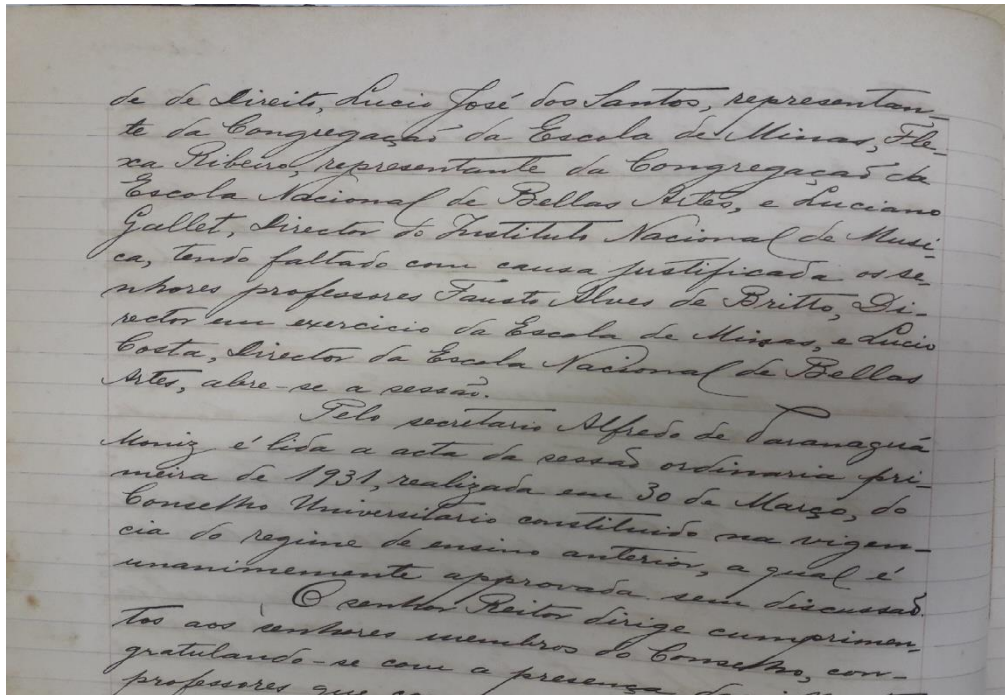 de de Direito, Lucio José dos Santos, representan-
te da Congregação da Escola de Minas, Fle-
xa Ribeiro, representante da Congregação da
Escola Nacional de Bellas Artes, e Luciano
Gallet, Director do Instituto Nacional de Musi-
ca, tendo faltado com causa justificada os se-
nhores professores Fausto Alves de Britto, Di-
rector em exercicio da Escola de Minas, e Lucio
Costa, Director da Escola Nacional de Bellas
Artes, abre-se a sessão.
Pelo secretario Alfredo de Paranaguá
Moniz é lida a acta da sessão ordinaria pri-
meira de 1931, realizada em 30 de Março, do
Conselho Universitario constituido na vigen-
cia do regime de ensino anterior, a qual é
unanimemente approvada sem discussão.
O senhor Reitor dirige cumprimen-
tos aos senhores membros do Conselho, con-
gratulando-se com a presença
professores que